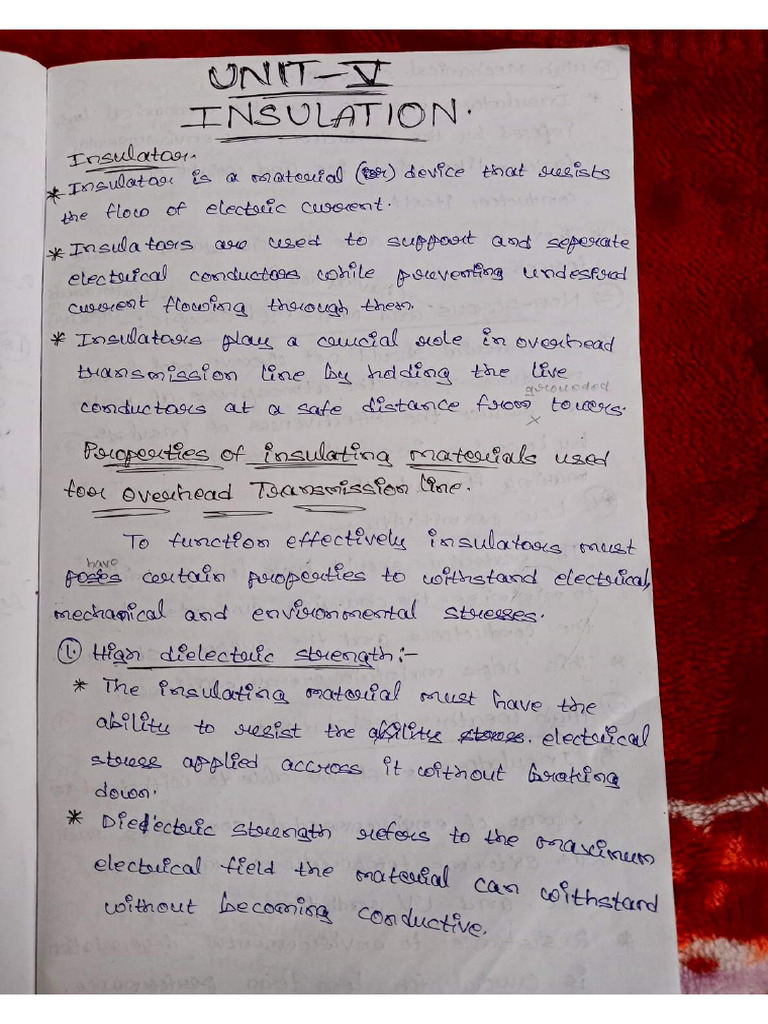 UNIT-V
INSULATION.
Insulator.
* Insulator is a material (or) device that resists
the flow of electric current.
* Insulators are used to support and seperate
electrical conductors while preventing undesired
current flowing through them.
* Insulators play a crucial role in overhead
transmission line by holding the live
grounded
conductors at a safe distance from towers.
x
Properties of insulating materials used
for overhead Transmission line.
To function effectively insulators must
have
poses certain properties to withstand electrical,
mechanical and environmental stresses.
1. High dielectric strength:-
* The insulating material must have the
ability to resist the ability stress. electrical
stress applied accross it without braking
down.
* Dielectric strength refers to the maximum
electrical field the material can withstand
without becoming conductive.